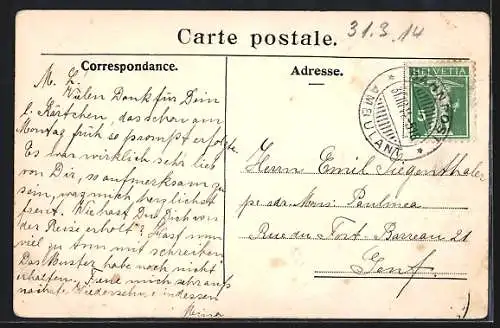 31.3.14
Carte postale.
Correspondance.
Adresse.
HELVETIA
AMBULANT
M. L!
Vielen Dank für Dein
l. Kärtchen, das schon am
Montag früh so prompt erfolgte.
Es war wirklich sehr lieb
von Dir, so aufmerksam zu
sein, was mich herzlichst
freut. Wie hast Du Dich von
der Reise erholt? Hast nun
viel zu tun mit schreiben
Das Muster habe noch nicht
erhalten. Freue mich schon aufs
nächste Wiedersehn, indessen
Herrn Emil Siegenthaler
pr. adr. Mons. Paulmea
Rue du Fort-Barreau 21
Genf.